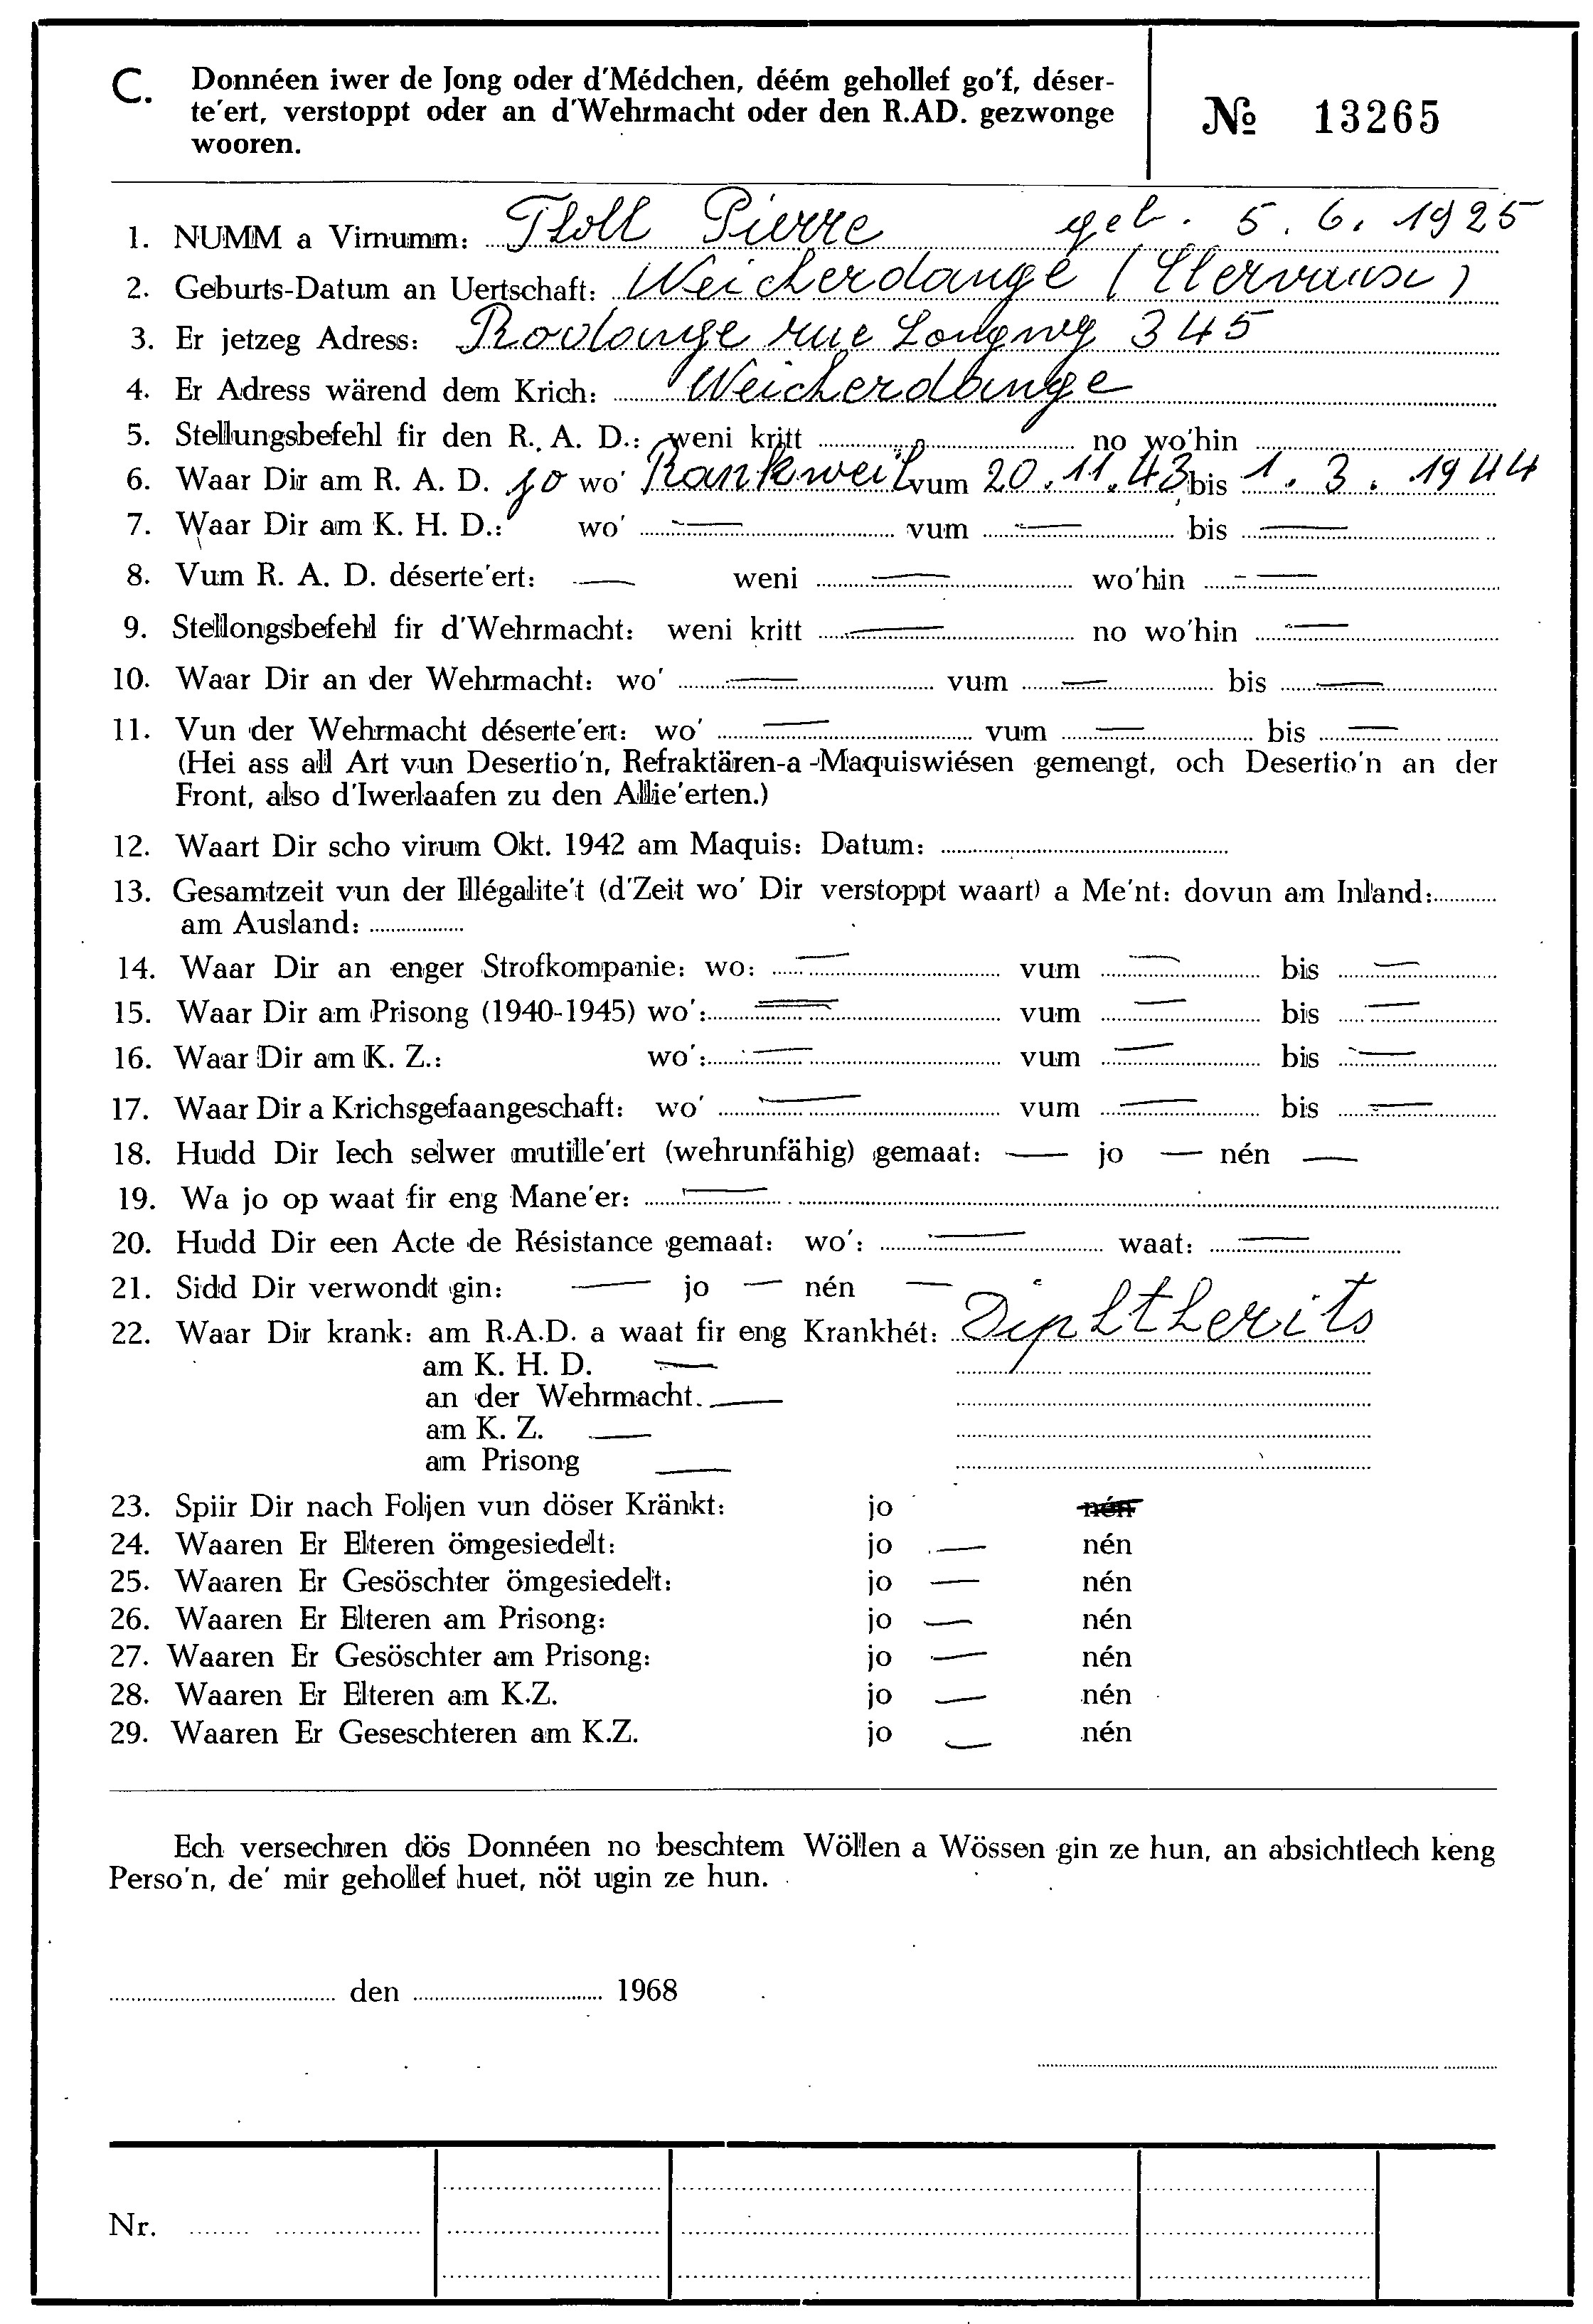 C. Donnéen iwer de Jong oder d'Médchen, déém gehollef go'f, déser-
te'ert, verstoppt oder an d'Wehrmacht oder den R.AD. gezwonge
wooren.
№ 13265
1. NUMM a Virnumm: Tholl Pierre geb. 5. 6. 1925
2. Geburts-Datum an Uertschaft: Weicherdange (Clervaux)
3. Er jetzeg Adress: Rodange rue Longwy 345
4. Er Adress wärend dem Krich: Weicherdange
5. Stellungsbefehl fir den R. A. D.: weni kritt no wo'hin
6. Waar Dir am R. A. D. jo wo' Rankweil vum 20.11.43 bis 1. 3. 1944
7. Waar Dir am K. H. D.: wo' — vum — bis —
8. Vum R. A. D. déserte'ert: — weni — wo'hin —
9. Stellongsbefehl fir d'Wehrmacht: weni kritt — no wo'hin —
10. Waar Dir an der Wehrmacht: wo' — vum — bis —
11. Vun der Wehrmacht déserte'ert: wo' — vum — bis —
(Hei ass all Art vun Desertio'n, Refraktären-a-Maquiswiésen gemengt, och Desertio'n an der
Front, also d'Iwerlaafen zu den Allie'erten.)
12. Waart Dir scho virum Okt. 1942 am Maquis: Datum:
13. Gesamtzeit vun der Illégalite't (d'Zeit wo' Dir verstoppt waart) a Me'nt: dovun am Inland:
am Ausland:
14. Waar Dir an enger Strofkompanie: wo: — vum — bis —
15. Waar Dir am Prisong (1940-1945) wo': — vum — bis —
16. Waar Dir am K. Z.: wo': — vum — bis —
17. Waar Dir a Krichsgefaangeschaft: wo' — vum — bis —
18. Hudd Dir Iech selwer mutille'ert (wehrunfähig) gemaat: — jo — nén —
19. Wa jo op waat fir eng Mane'er: —
20. Hudd Dir een Acte de Résistance gemaat: wo': — waat: —
21. Sidd Dir verwondt gin: — jo — nén —
22. Waar Dir krank: am R.A.D. a waat fir eng Krankhét: Diphtherits
am K. H. D. —
an der Wehrmacht. —
am K. Z. —
am Prisong —
23. Spiir Dir nach Foljen vun döser Kränkt: jo nén
24. Waaren Er Elteren ömgesiedelt: jo — nén
25. Waaren Er Gesöschter ömgesiedelt: jo — nén
26. Waaren Er Elteren am Prisong: jo — nén
27. Waaren Er Gesöschter am Prisong: jo — nén
28. Waaren Er Elteren am K.Z. jo — nén
29. Waaren Er Geseschteren am K.Z. jo — nén
Ech versechren dös Donnéen no beschtem Wöllen a Wössen gin ze hun, an absichtlech keng
Perso'n, de' mir gehollef huet, nöt ugin ze hun.
den 1968
Nr.